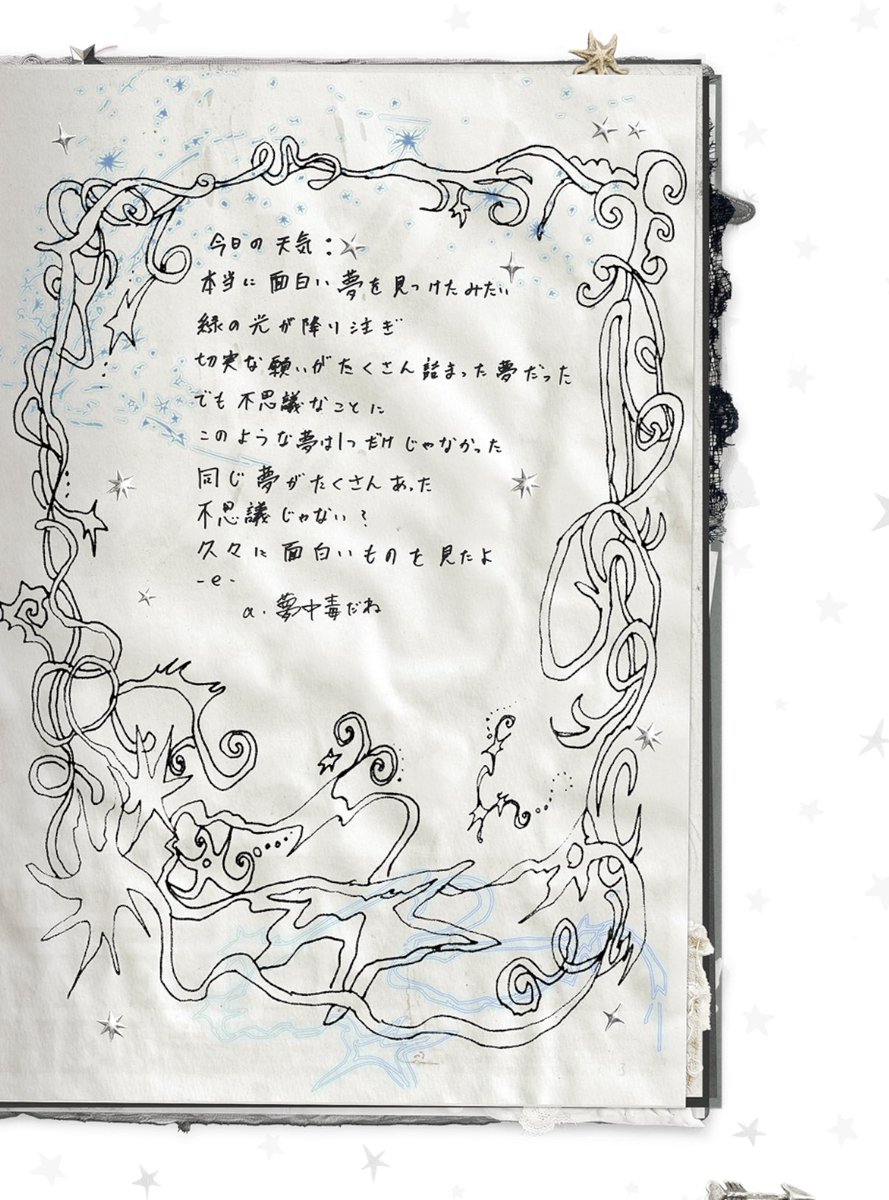 今日の天気:
本当に面白い夢を見つけたみたい
緑の光が降り注ぎ
切実な願いがたくさん詰まった夢だった
でも不思議なことに
このような夢は1つだけじゃなかった
同じ夢がたくさんあった
不思議じゃない?
久々に面白いものを見たよ
-e-
a. 夢中毒だね